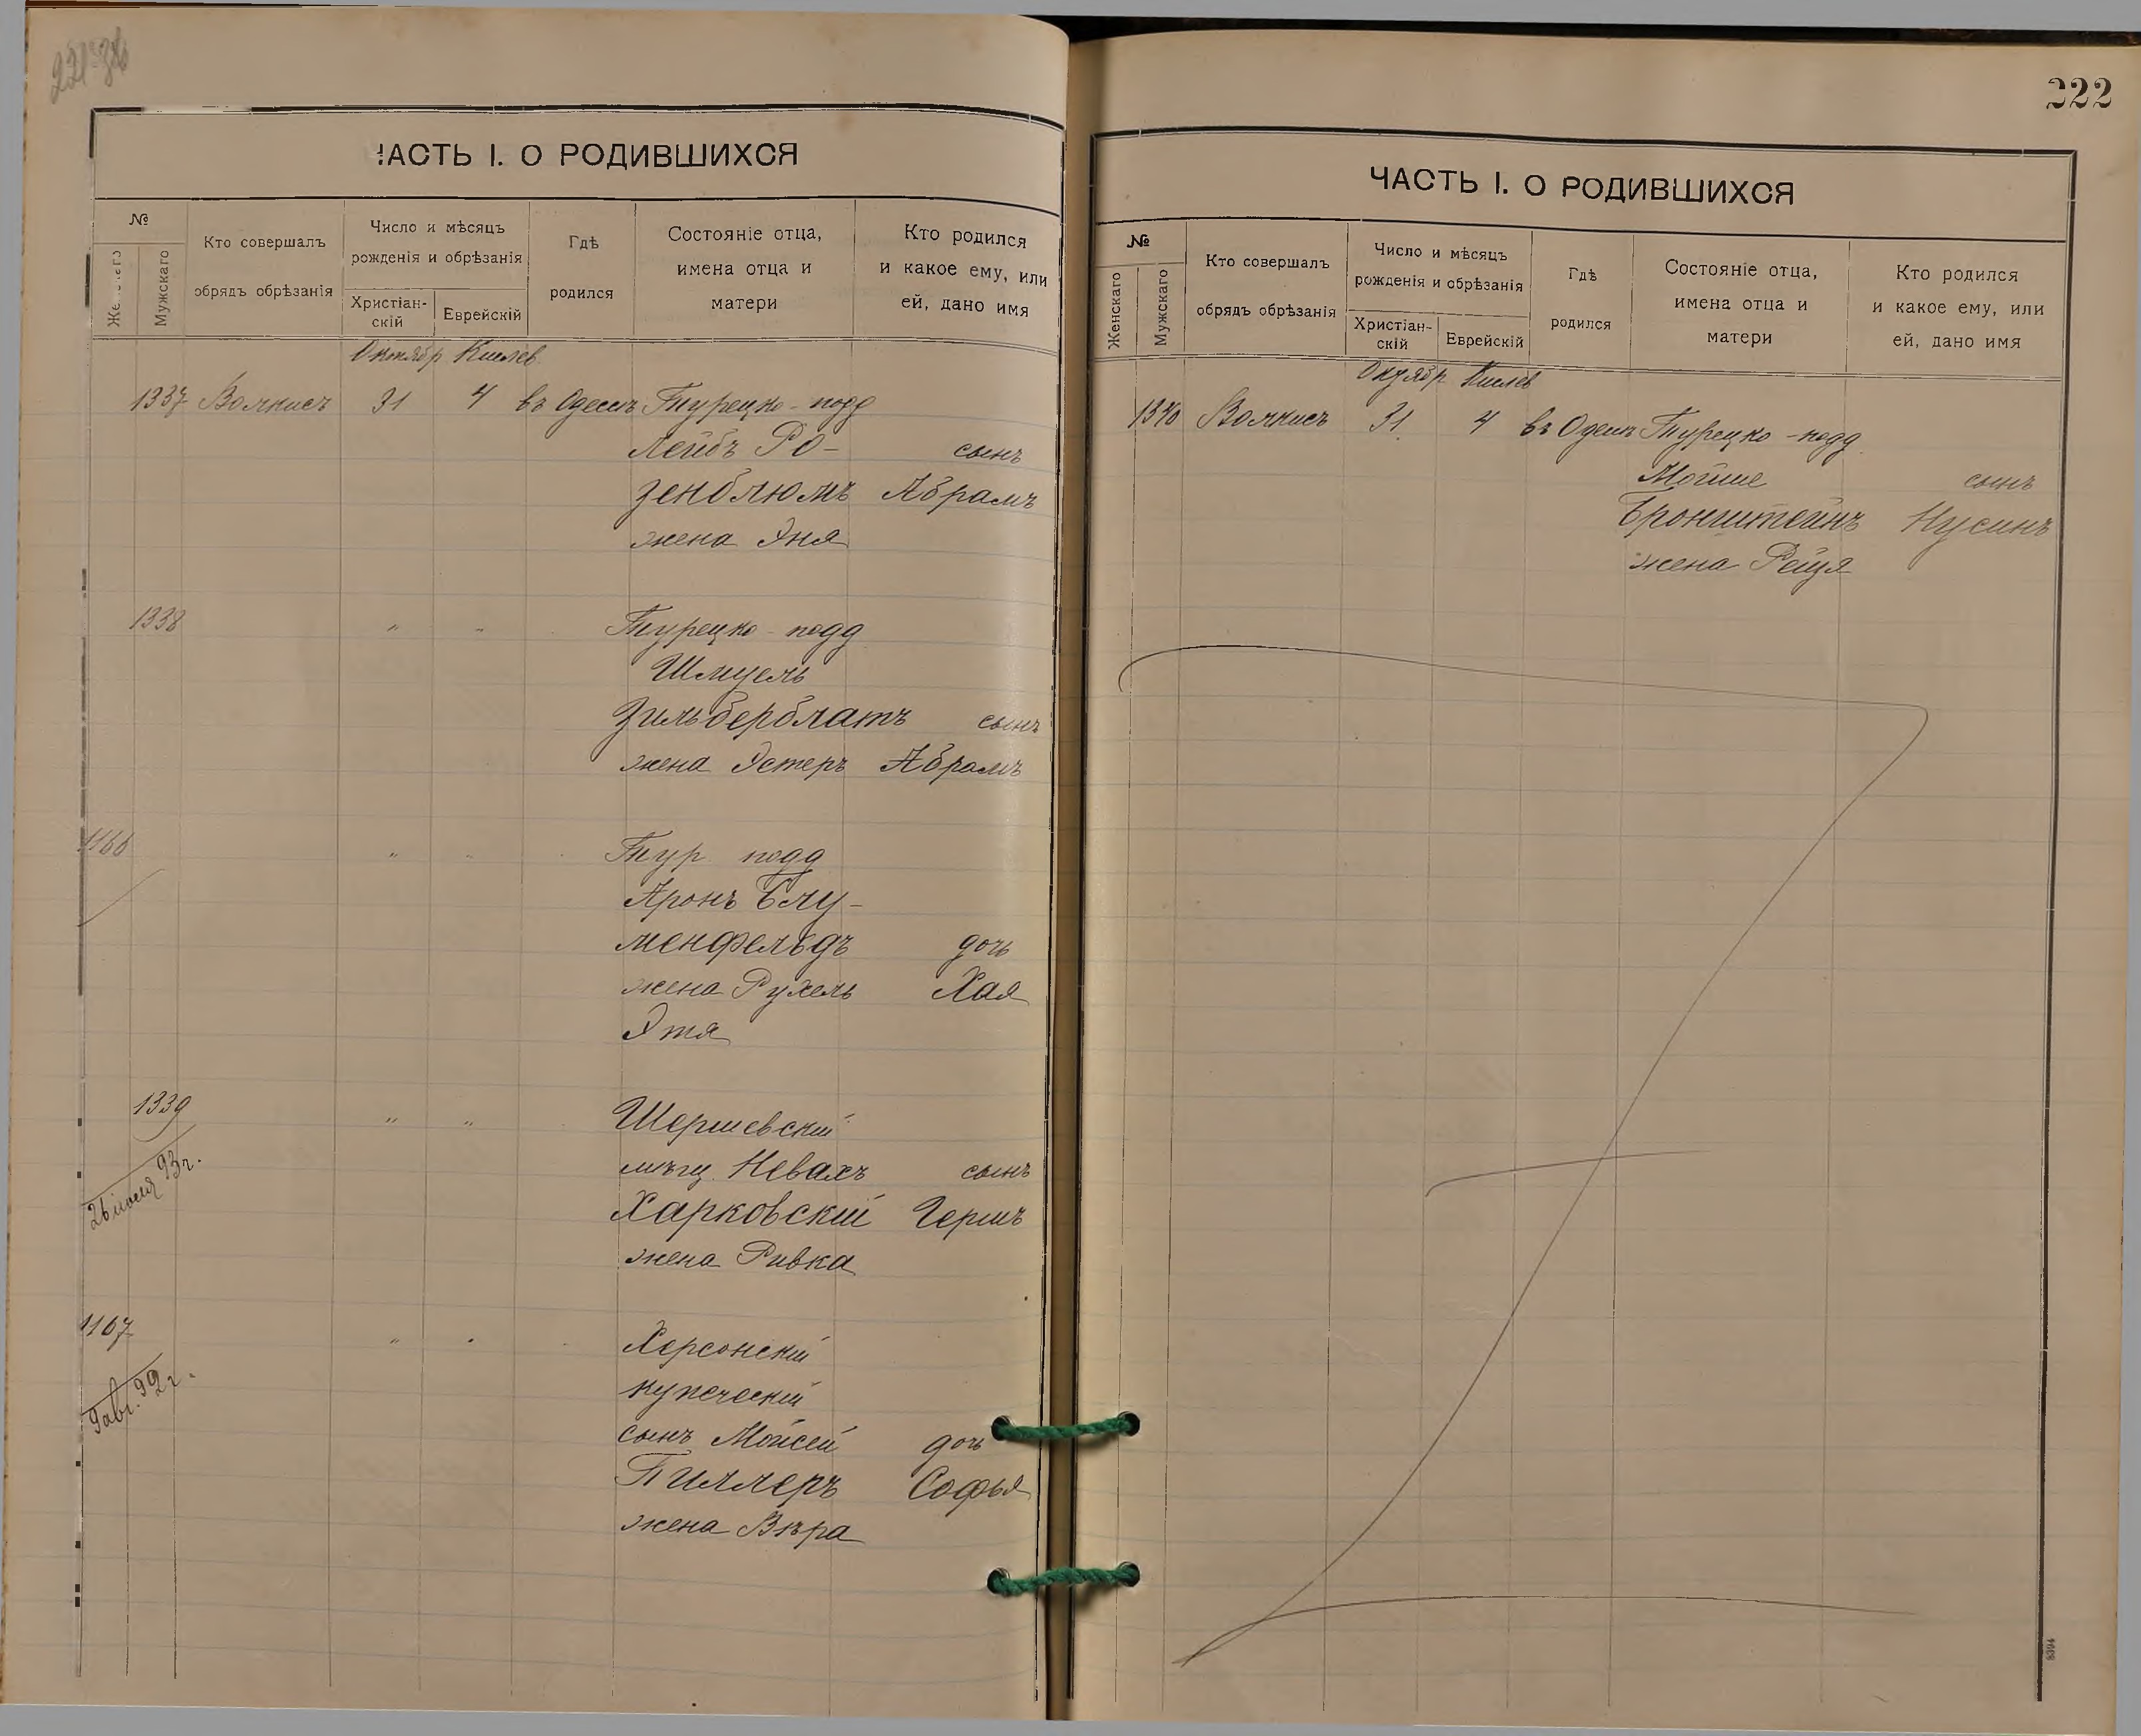 222
ЧАСТЬ I. О РОДИВШИХСЯ
№
Женскаго
Мужскаго
Кто совершалъ
обрядъ обрѣзанія
Число и мѣсяцъ
рожденія и обрѣзанія
Христіан-
скій
Еврейскій
Гдѣ
родился
Состояніе отца,
имена отца и
матери
Кто родился
и какое ему, или
ей, дано имя
Октябр Кислев
1337 31 4 въ Одессѣ Турецко-подд
Лейбъ Ро- сынъ
зенблюмъ Абрамъ
жена Эня
1338 " " Турецко-подд
Шмуель
Зильберблатъ сынъ
жена Эстеръ Абрамъ
1166 " " Тур подд
Аронъ Блу-
менфельдъ дочь
жена Рухель Хая
Этя
1339 " " Шершевскій
мѣщ. Невахъ сынъ
Харковскій Гершъ
жена Ривка
26 июля 93 г.
1167 " " Херсонскій
купеческій
сынъ Мойсей дочь
Пиллеръ Софья
жена Вѣра
9 авг. 92 г.
ЧАСТЬ I. О РОДИВШИХСЯ
№
Женскаго
Мужскаго
Кто совершалъ
обрядъ обрѣзанія
Число и мѣсяцъ
рожденія и обрѣзанія
Христіан-
скій
Еврейскій
Гдѣ
родился
Состояніе отца,
имена отца и
матери
Кто родился
и какое ему, или
ей, дано имя
Октябр Кислев
1340 31 4 въ Одессѣ Турецко-подд
Мойше сынъ
Бронштейнъ Нусинъ
жена Рейзя
8394